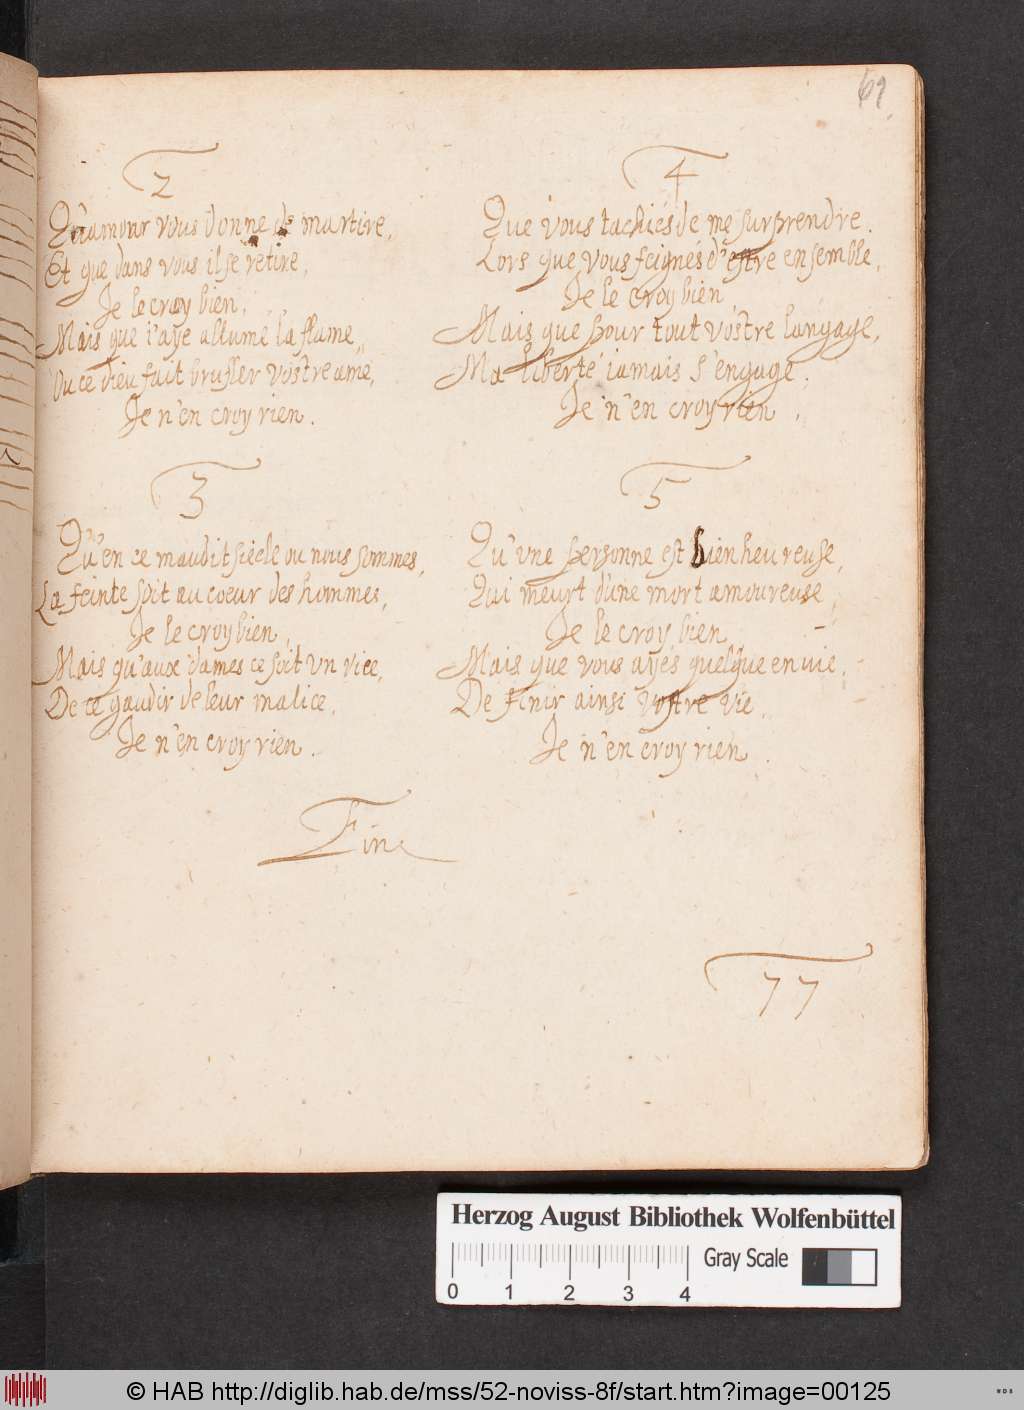 69
2
Qu'amour vous donne de martire,
Et que dans vous il se retire,
Je le croy bien,
Mais que i'aye allumé la flame,
Ou ce dieu fait brusler vostre ame,
Je n'en croy rien.
3
Qu'en ce maudit siecle ou nous sommes,
La feinte soit au coeur des hommes,
Je le croy bien,
Mais qu'aux dames ce soit un vice,
De ce gaudir de leur malice.
Je n'en croy rien.
4
Que vous tachiés de me surprendre.
Lors que vous feignés d'estre ensemble,
Je le croy bien,
Mais que pour tout vostre langage,
Ma liberté iamais s'engage,
Je n'en croy rien,
5
Qu'vne personne est bienheureuse,
Qui meurt d'une mort amoureuse,
Je le croy bien,
Mais que vous ayés quelque envie,
De finir ainsi vostre vie,
Je n'en croy rien.
Fin
77
Herzog August Bibliothek Wolfenbüttel
Gray Scale
0 1 2 3 4
© HAB http://diglib.hab.de/mss/52-noviss-8f/start.htm?image=00125